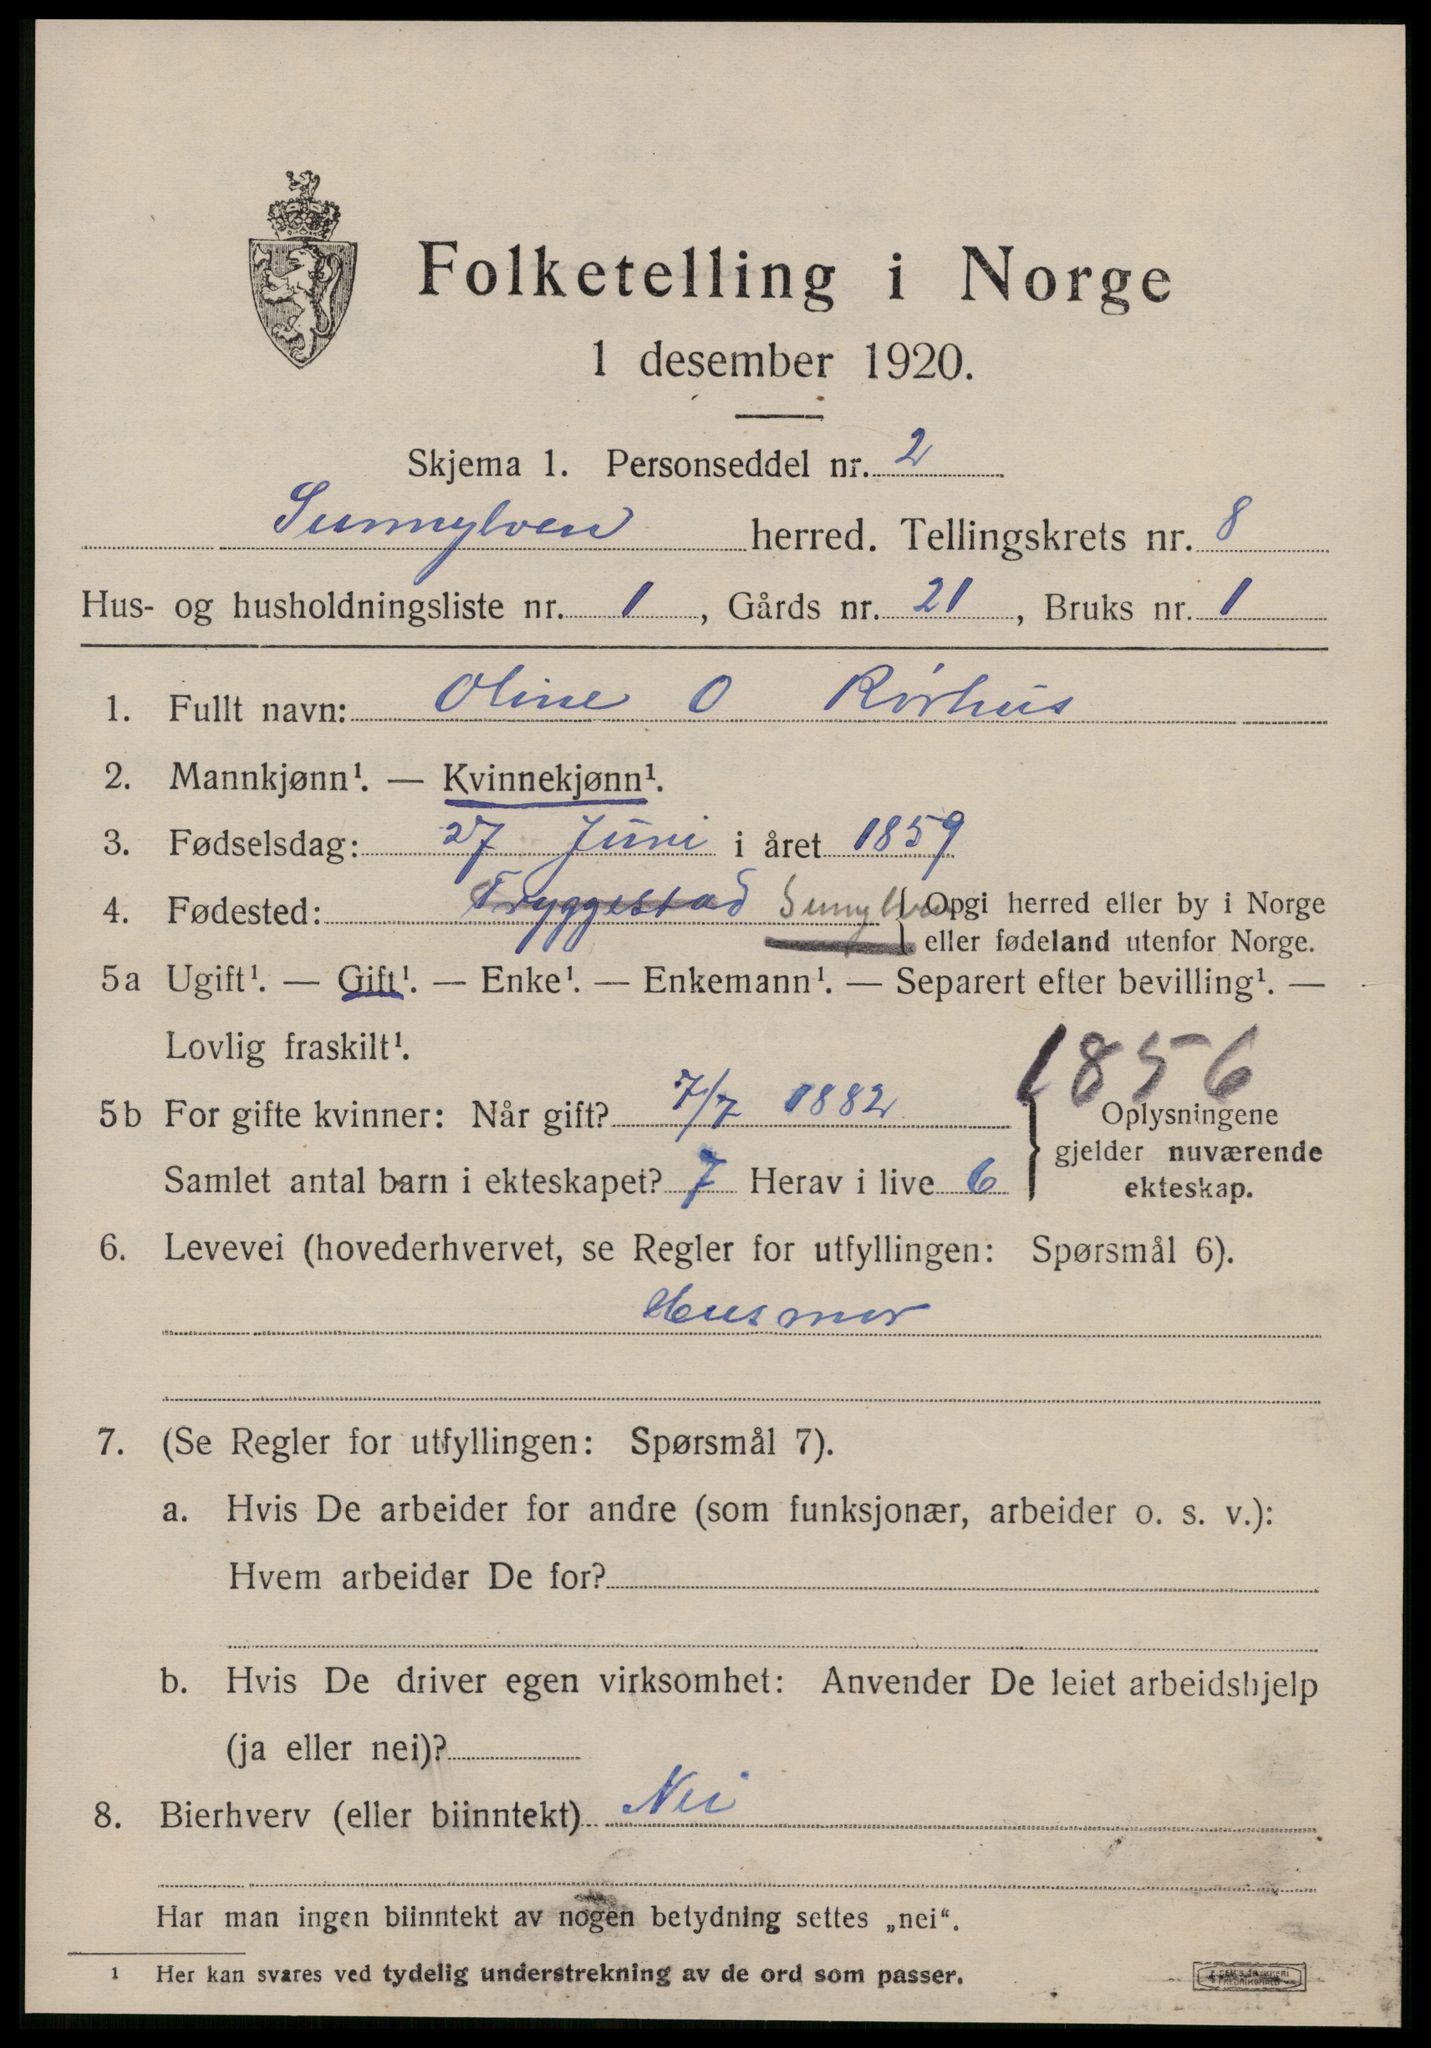 Folketelling i Norge
1 desember 1920.
Skjema 1. Personseddel nr. 2
Sunnylven herred. Tellingskrets nr. 8
Hus- og husholdningsliste nr. 1, Gårds nr. 21, Bruks nr. 1
1. Fullt navn: Oline O Rørhus
2. Mannkjønn¹. — Kvinnekjønn¹.
3. Fødselsdag: 27 Juni i året 1859
4. Fødested: Tryggestad Sunnylven { Opgi herred eller by i Norge
eller fødeland utenfor Norge.
5a Ugift¹. — Gift¹. — Enke¹. — Enkemann¹. — Separert efter bevilling¹. —
Lovlig fraskilt¹.
1856
5b For gifte kvinner: Når gift? 7/7 1882 } Oplysningene
gjelder nuværende
Samlet antal barn i ekteskapet? 7 Herav i live 6 ekteskap.
6. Levevei (hovederhvervet, se Regler for utfyllingen: Spørsmål 6).
Husmor
7. (Se Regler for utfyllingen: Spørsmål 7).
a. Hvis De arbeider for andre (som funksjonær, arbeider o. s. v.):
Hvem arbeider De for?
b. Hvis De driver egen virksomhet: Anvender De leiet arbeidshjelp
(ja eller nei)?
8. Bierhverv (eller biinntekt) Nei
Har man ingen biinntekt av nogen betydning settes „nei“.
¹ Her kan svares ved tydelig understrekning av de ord som passer.